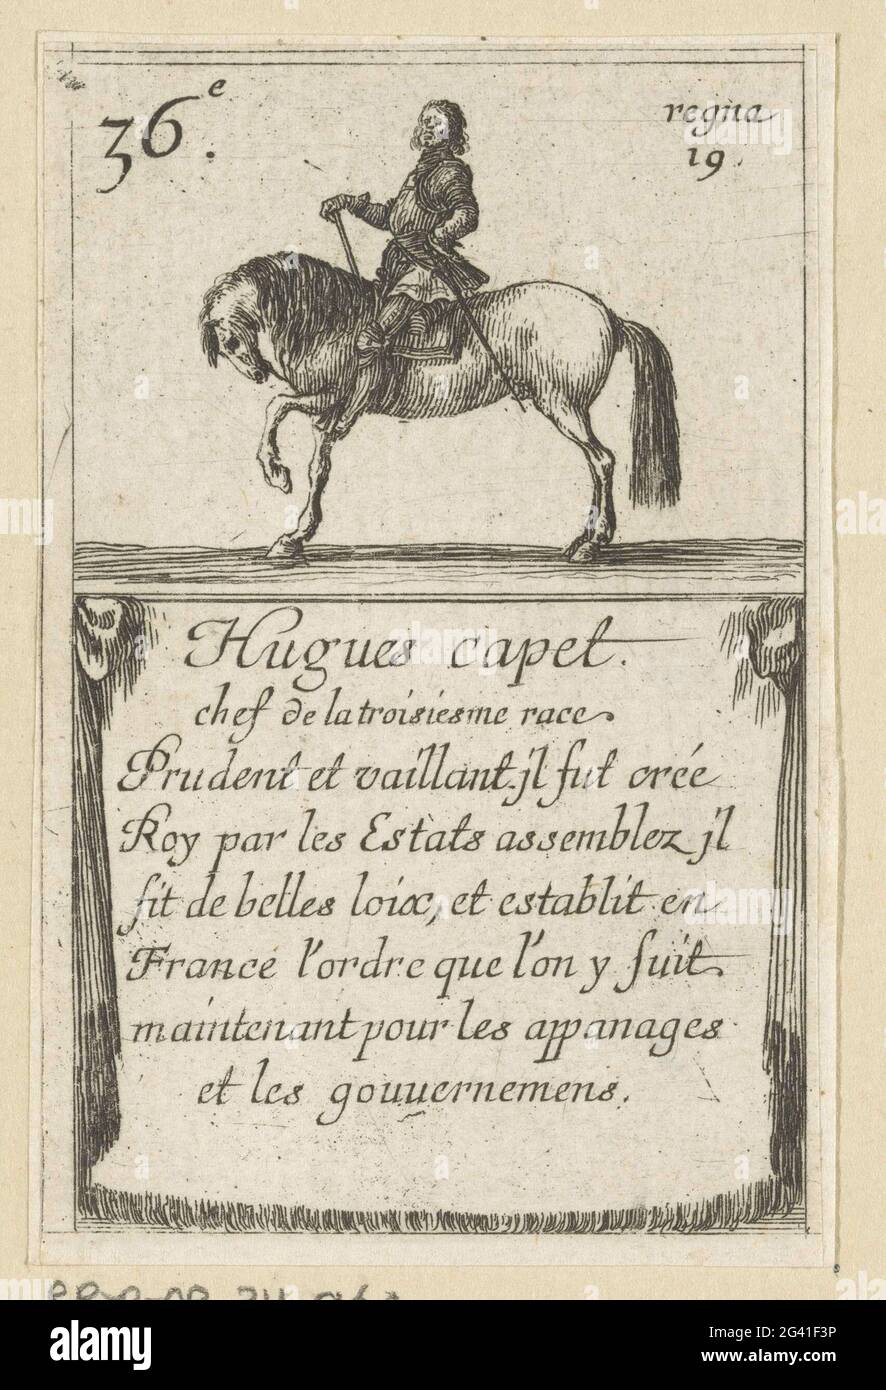 36.e
regna
19.
Hugues capet.
chef de la troisiesme race
Prudent et vaillant jl fut crée
Roy par les Estats assemblez jl
fit de belles loix, et establit en
France l'ordre que l'on y suit
maintenant pour les appanages
et les gouuernemens.
alamy
Image ID: 2G41F3P
www.alamy.com